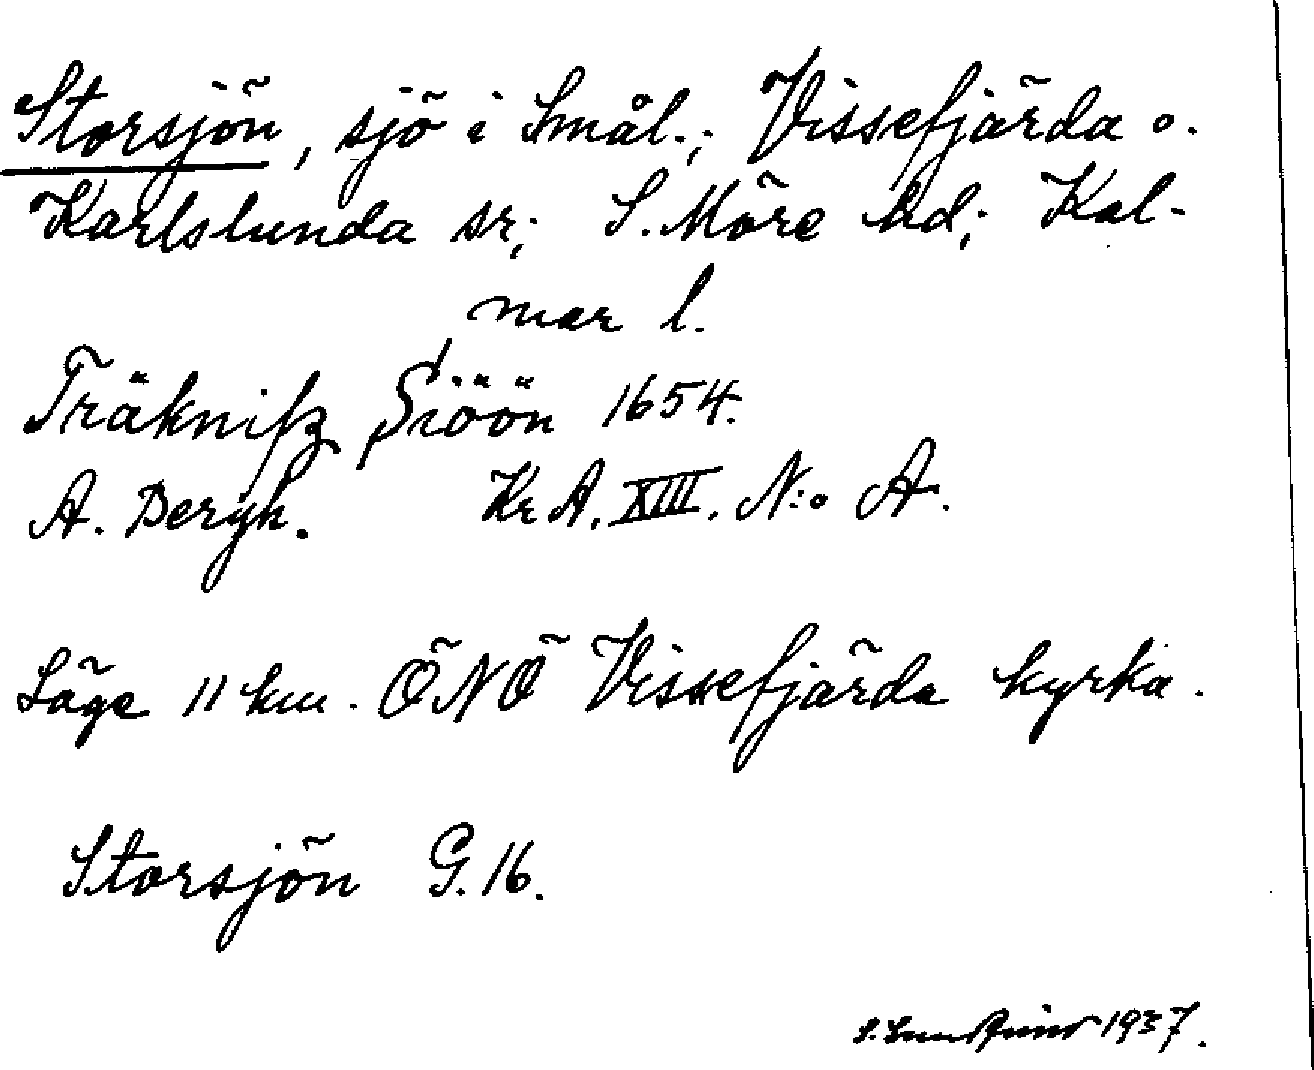 Storsjön, sjö i Smål.; Vissefjärda o.
Karlslunda sr; S. Möre hd; Kal-
mar l.
Träknitz Siöön 1654.
A. Bergh. Kr A. XIII. N:o A.
Läge 11 km. ÖNÖ Vissefjärda kyrka.
Storsjön G. 16.
S. 1937.